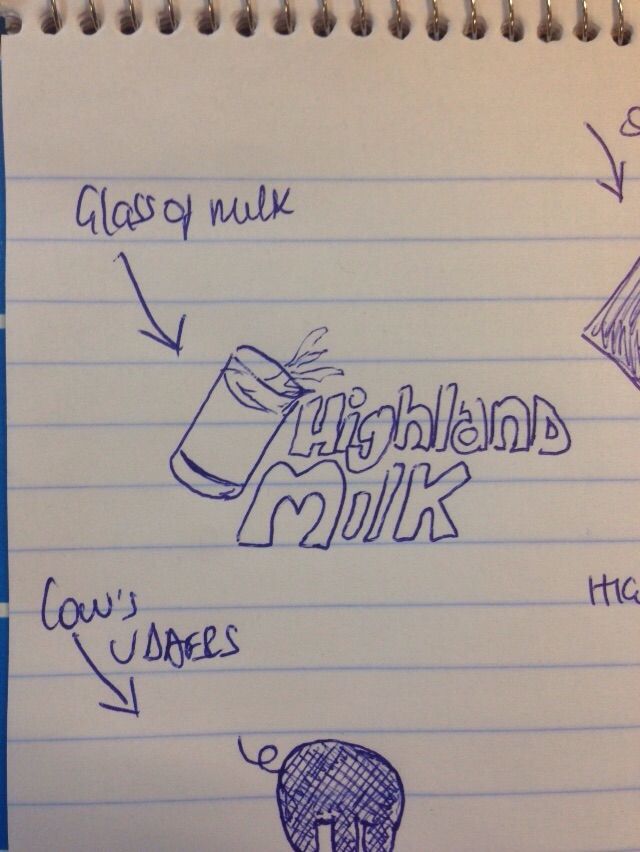 Glass of milk
Highland
Milk
Cow's
UDDERS
HIG